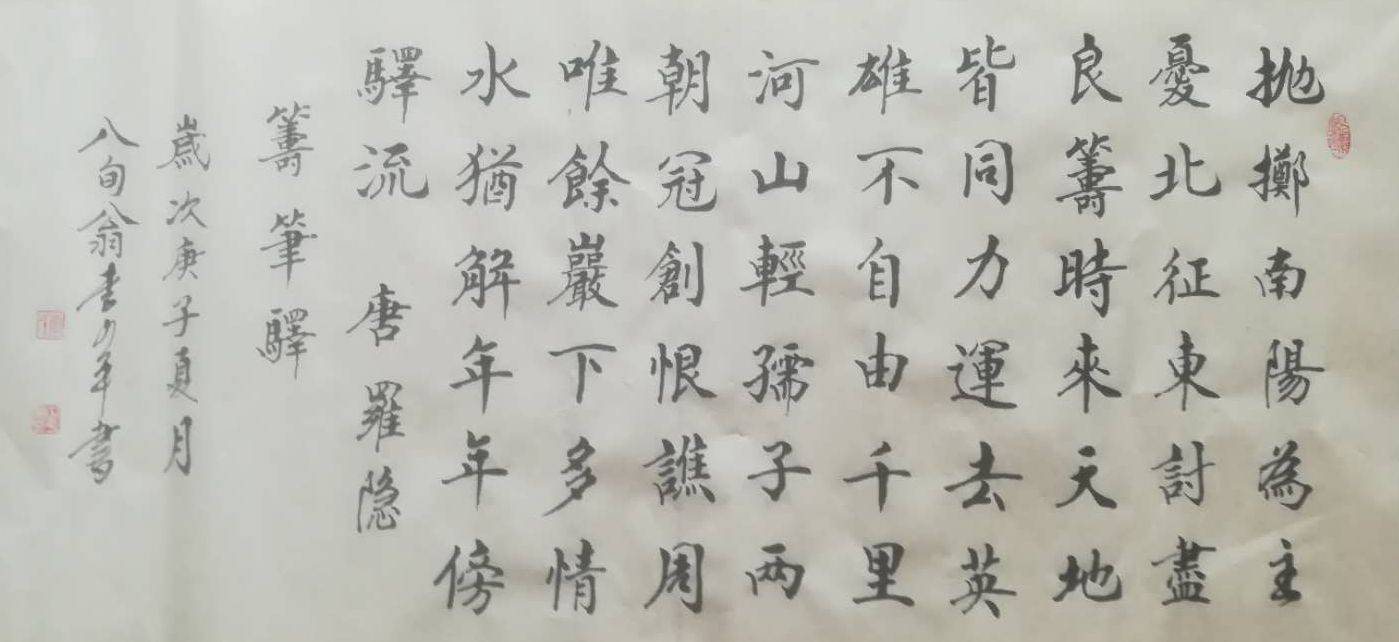 拋擲南陽為主
憂北征東討盡
良籌時來天地
皆同力運去英
雄不自由千里
河山輕孺子兩
朝冠創恨譙周
唯餘巖下多情
水猶解年年傍
驛流 唐 羅隐
籌筆驛
歲次庚子夏月
八旬翁李少年書